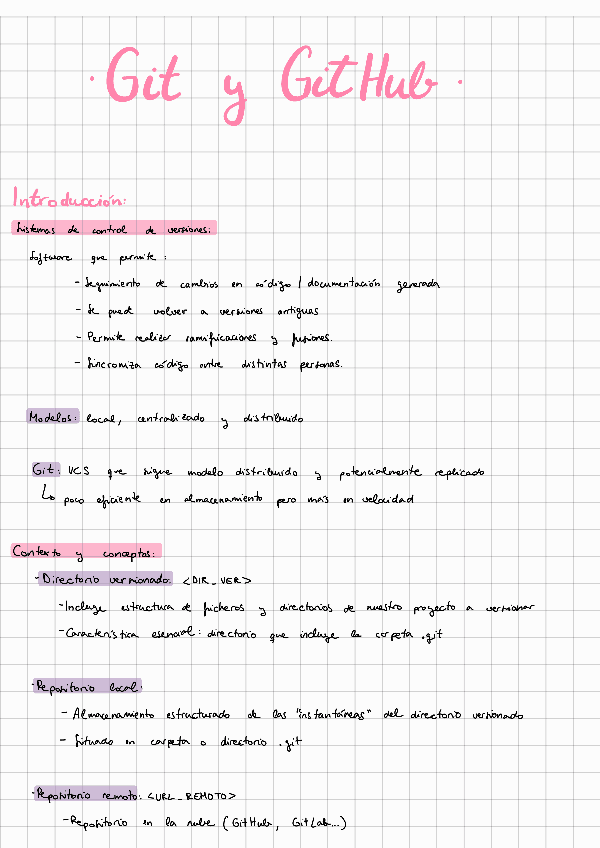 · Git y GitHub ·
Introducción:
Sistemas de control de versiones:
Software que permite :
- Seguimiento de cambios en código / documentación generada
- Se puede volver a versiones antiguas
- Permite realizar ramificaciones y fusiones.
- Sincroniza código entre distintas personas.
Modelos: local, centralizado y distribuido
Git: VCS que sigue modelo distribuido y potencialmente replicado
↳ poco eficiente en almacenamiento pero más en velocidad
Contexto y conceptos:
- Directorio versionado: <DIR_VER>
- Incluye estructura de ficheros y directorios de nuestro proyecto a versionar
- Característica esencial: directorio que incluye la carpeta .git
· Repositorio local:
- Almacenamiento estructurado de las "instantáneas" del directorio versionado
- Situado en carpeta o directorio .git
· Repositorio remoto: <URL_REMOTO>
- Repositorio en la nube (GitHub, GitLab...)